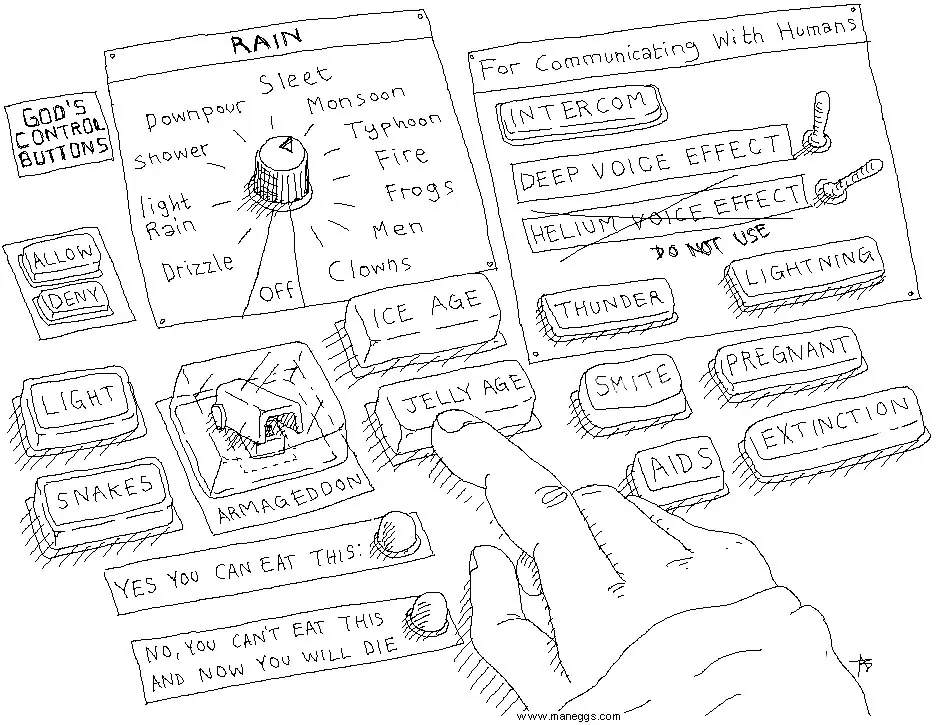 GOD'S
CONTROL
BUTTONS
RAIN
Sleet
Downpour
Monsoon
Shower
Typhoon
Fire
light
Rain
Frogs
Men
Drizzle
Clowns
Off
For Communicating With Humans
INTERCOM
DEEP VOICE EFFECT
HELIUM VOICE EFFECT
DO NOT USE
THUNDER
LIGHTNING
ALLOW
DENY
ICE AGE
JELLY AGE
SMITE
PREGNANT
LIGHT
SNAKES
ARMAGEDDON
AIDS
EXTINCTION
YES YOU CAN EAT THIS:
NO, YOU CAN'T EAT THIS
AND NOW YOU WILL DIE
www.maneggs.com